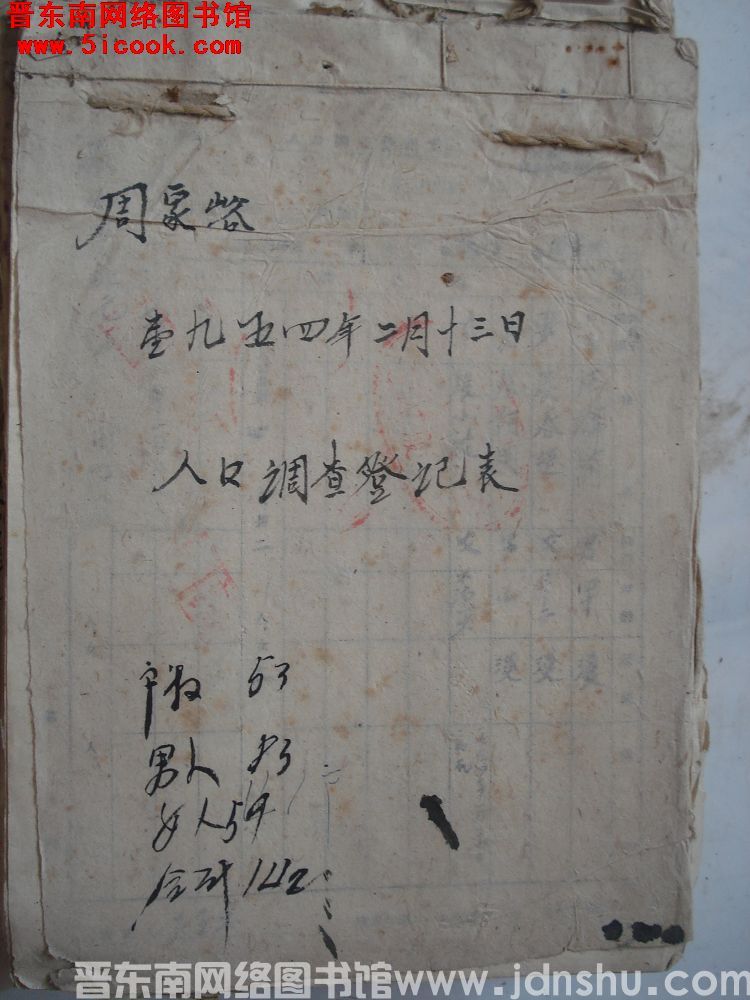 晋东南网络图书馆
www.5icook.com
周家峪
壹九五四年二月十三日
人口調查登记表
户数 53
男人 83
女人 59
合计 142
晋东南网络图书馆www.jdnshu.com